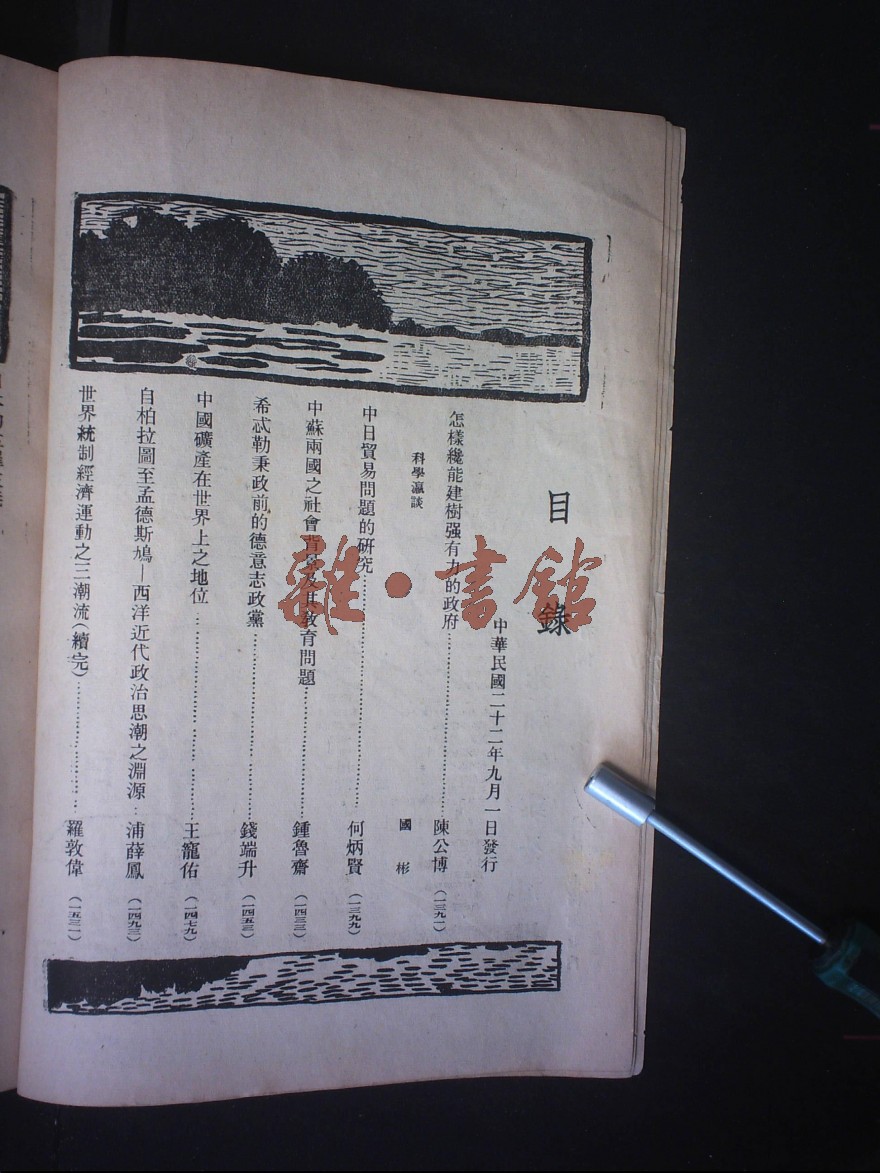 目錄
中華民國二十二年九月一日發行
怎樣纔能建樹强有力的政府……陳公博（一三九一）
科學瀛談 國彬
中日貿易問題的研究……何炳賢（一三九九）
中蘇兩國之社會背景及其教育問題……鍾魯齋（一四三三）
希忒勒秉政前的德意志政黨……錢端升（一四五三）
中國礦產在世界上之地位……王寵佑（一四七九）
自柏拉圖至孟德斯鳩—西洋近代政治思潮之淵源…浦薛鳳（一四九三）
世界統制經濟運動之三潮流（續完）……羅敦偉（一五三一）
雜·書館